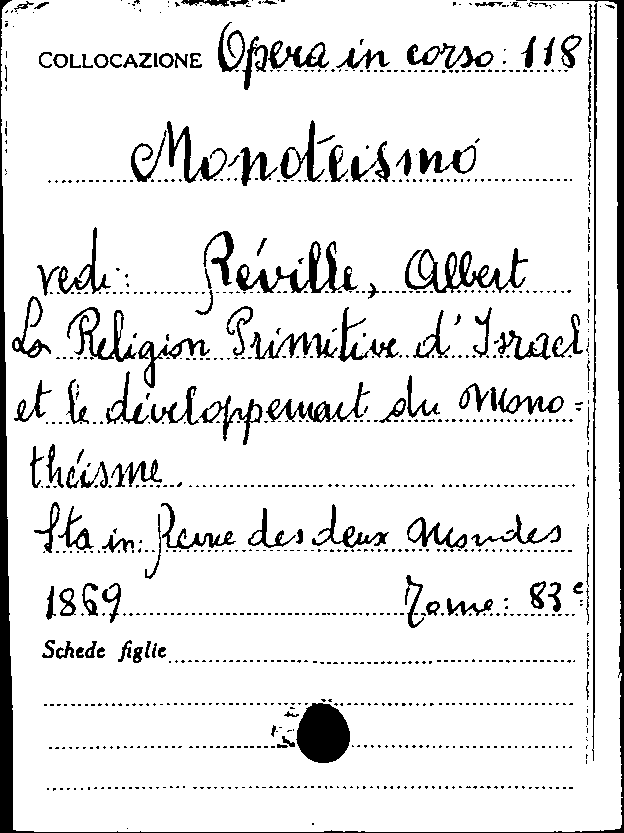 COLLOCAZIONE Opera in corso: 118
Monoteismo
vedi: Réville, Albert
La Religion Primitive d'Israel
et le développement du Mono=
théisme.
Sta in: Revue des deux Mondes
1869 Tome: 83e
Schede figlie